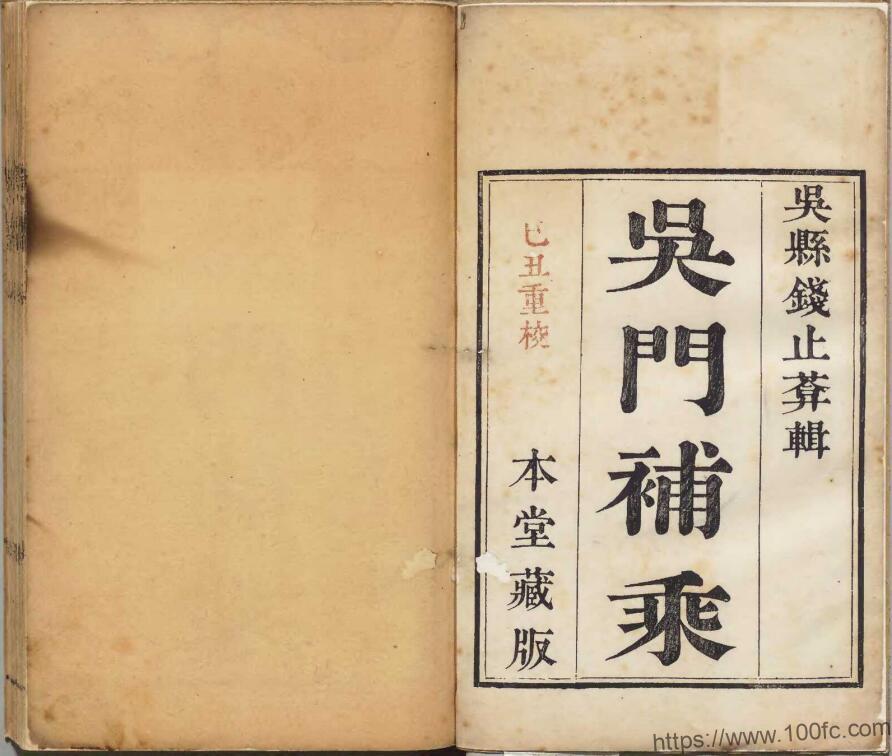 吳縣錢止葊輯
吳門補乘
己丑重校
本堂藏版
https://www.100fc.com